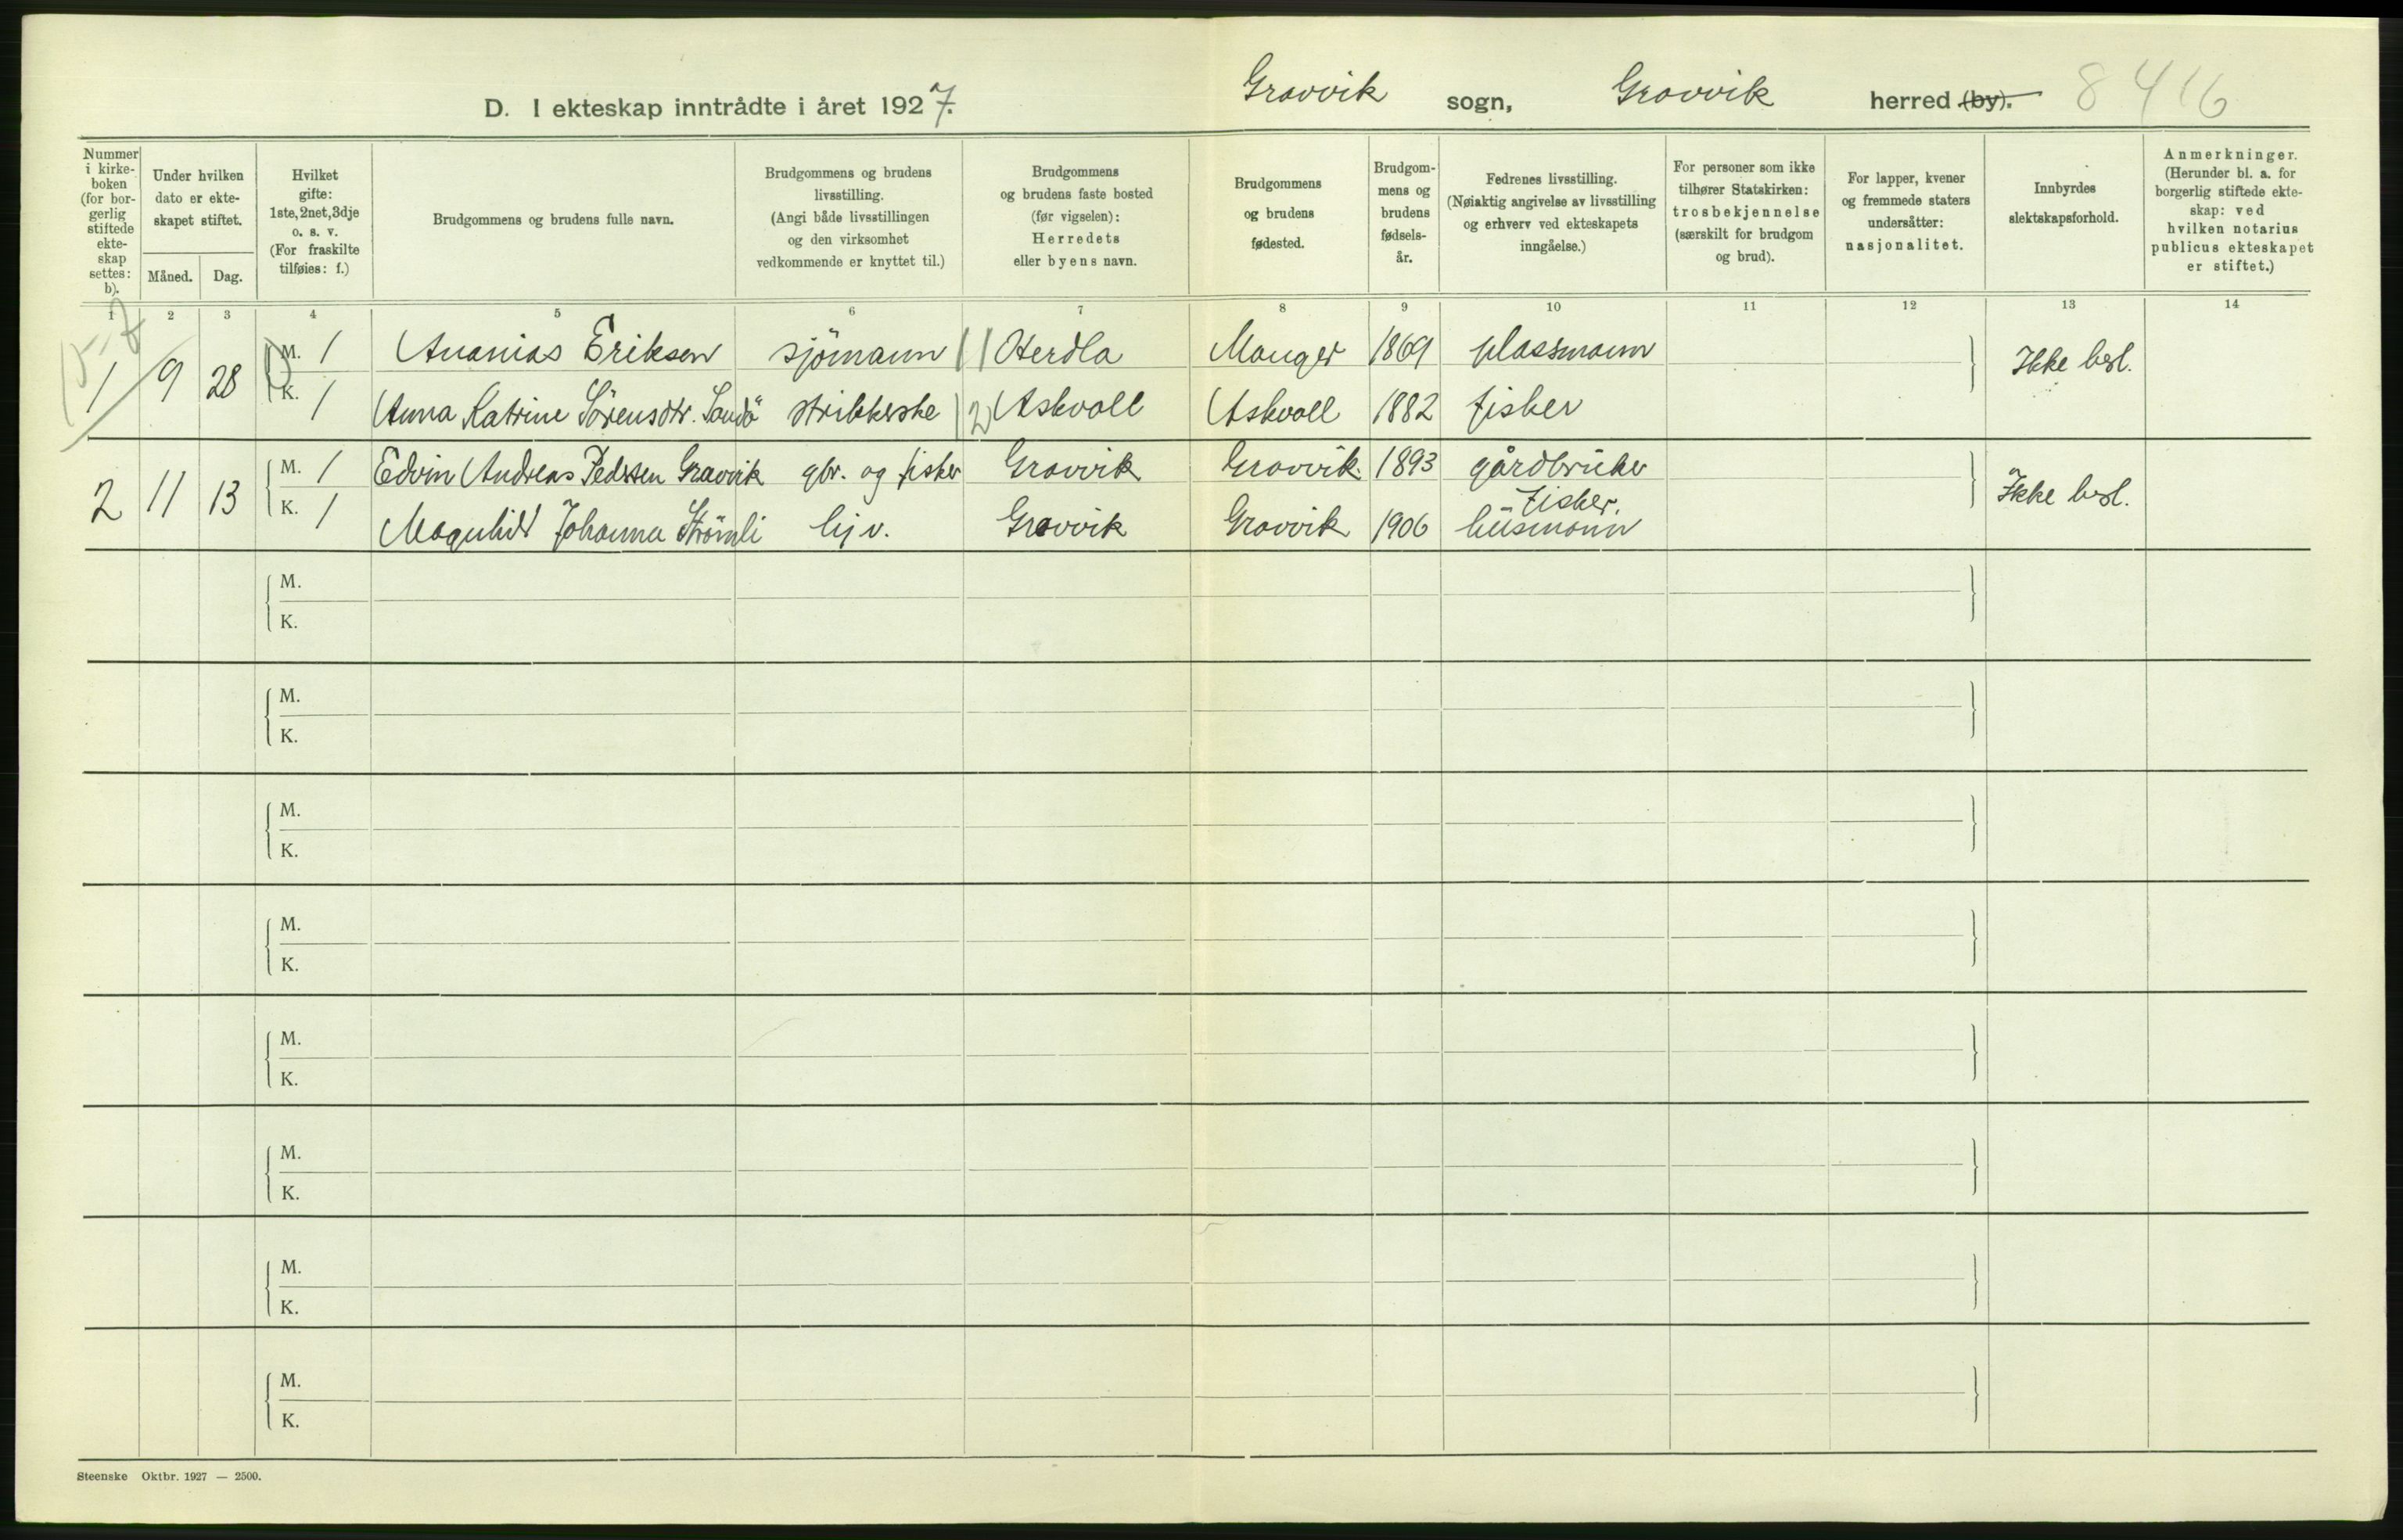 D. I ekteskap inntrådte i året 1927.
Gravvik sogn, Gravvik herred (by). 8416
Nummer i kirke-boken (for bor-gerlig stiftede ekte-skap settes: b).
Under hvilken dato er ekte-skapet stiftet.
Måned. Dag.
Hvilket gifte: 1ste, 2net, 3dje o. s. v. (For fraskilte tilføies: f.)
Brudgommens og brudens fulle navn.
Brudgommens og brudens livsstilling. (Angi både livsstillingen og den virksomhet vedkommende er knyttet til.)
Brudgommens og brudens faste bosted (før vigselen): Herredets eller byens navn.
Brudgommens og brudens fødested.
Brudgom-mens og brudens fødsels-år.
Fedrenes livsstilling. (Nøiaktig angivelse av livsstilling og erhverv ved ekteskapets inngåelse.)
For personer som ikke tilhører Statskirken: trosbekjennelse (særskilt for brudgom og brud).
For lapper, kvener og fremmede staters undersåtter: nasjonalitet.
Innbyrdes slektskapsforhold.
Anmerkninger. (Herunder bl. a. for borgerlig stiftede ekte-skap: ved hvilken notarius publicus ekteskapet er stiftet.)
1 2 3 4 5 6 7 8 9 10 11 12 13 14
1 9 28 M. 1 Ananias Eriksen sjömann Herdla Manger 1869 plassmann Ikke besl.
K. 1 Anna Katrine Sörensdtr. Sandö strikkerske Askvoll Askvoll 1882 fisker
2 11 13 M. 1 Edvin Andreas Pedersen Gravvik gbr. og fisker Gravvik Gravvik 1893 gårdbruker Ikke besl.
fisker.
K. 1 Magnhild Johanna Strömli hj v. Gravvik Gravvik 1906 husmann
M.
K.
M.
K.
M.
K.
M.
K.
M.
K.
M.
K.
M.
K.
M.
K.
Steenske Oktbr. 1927 — 2500.